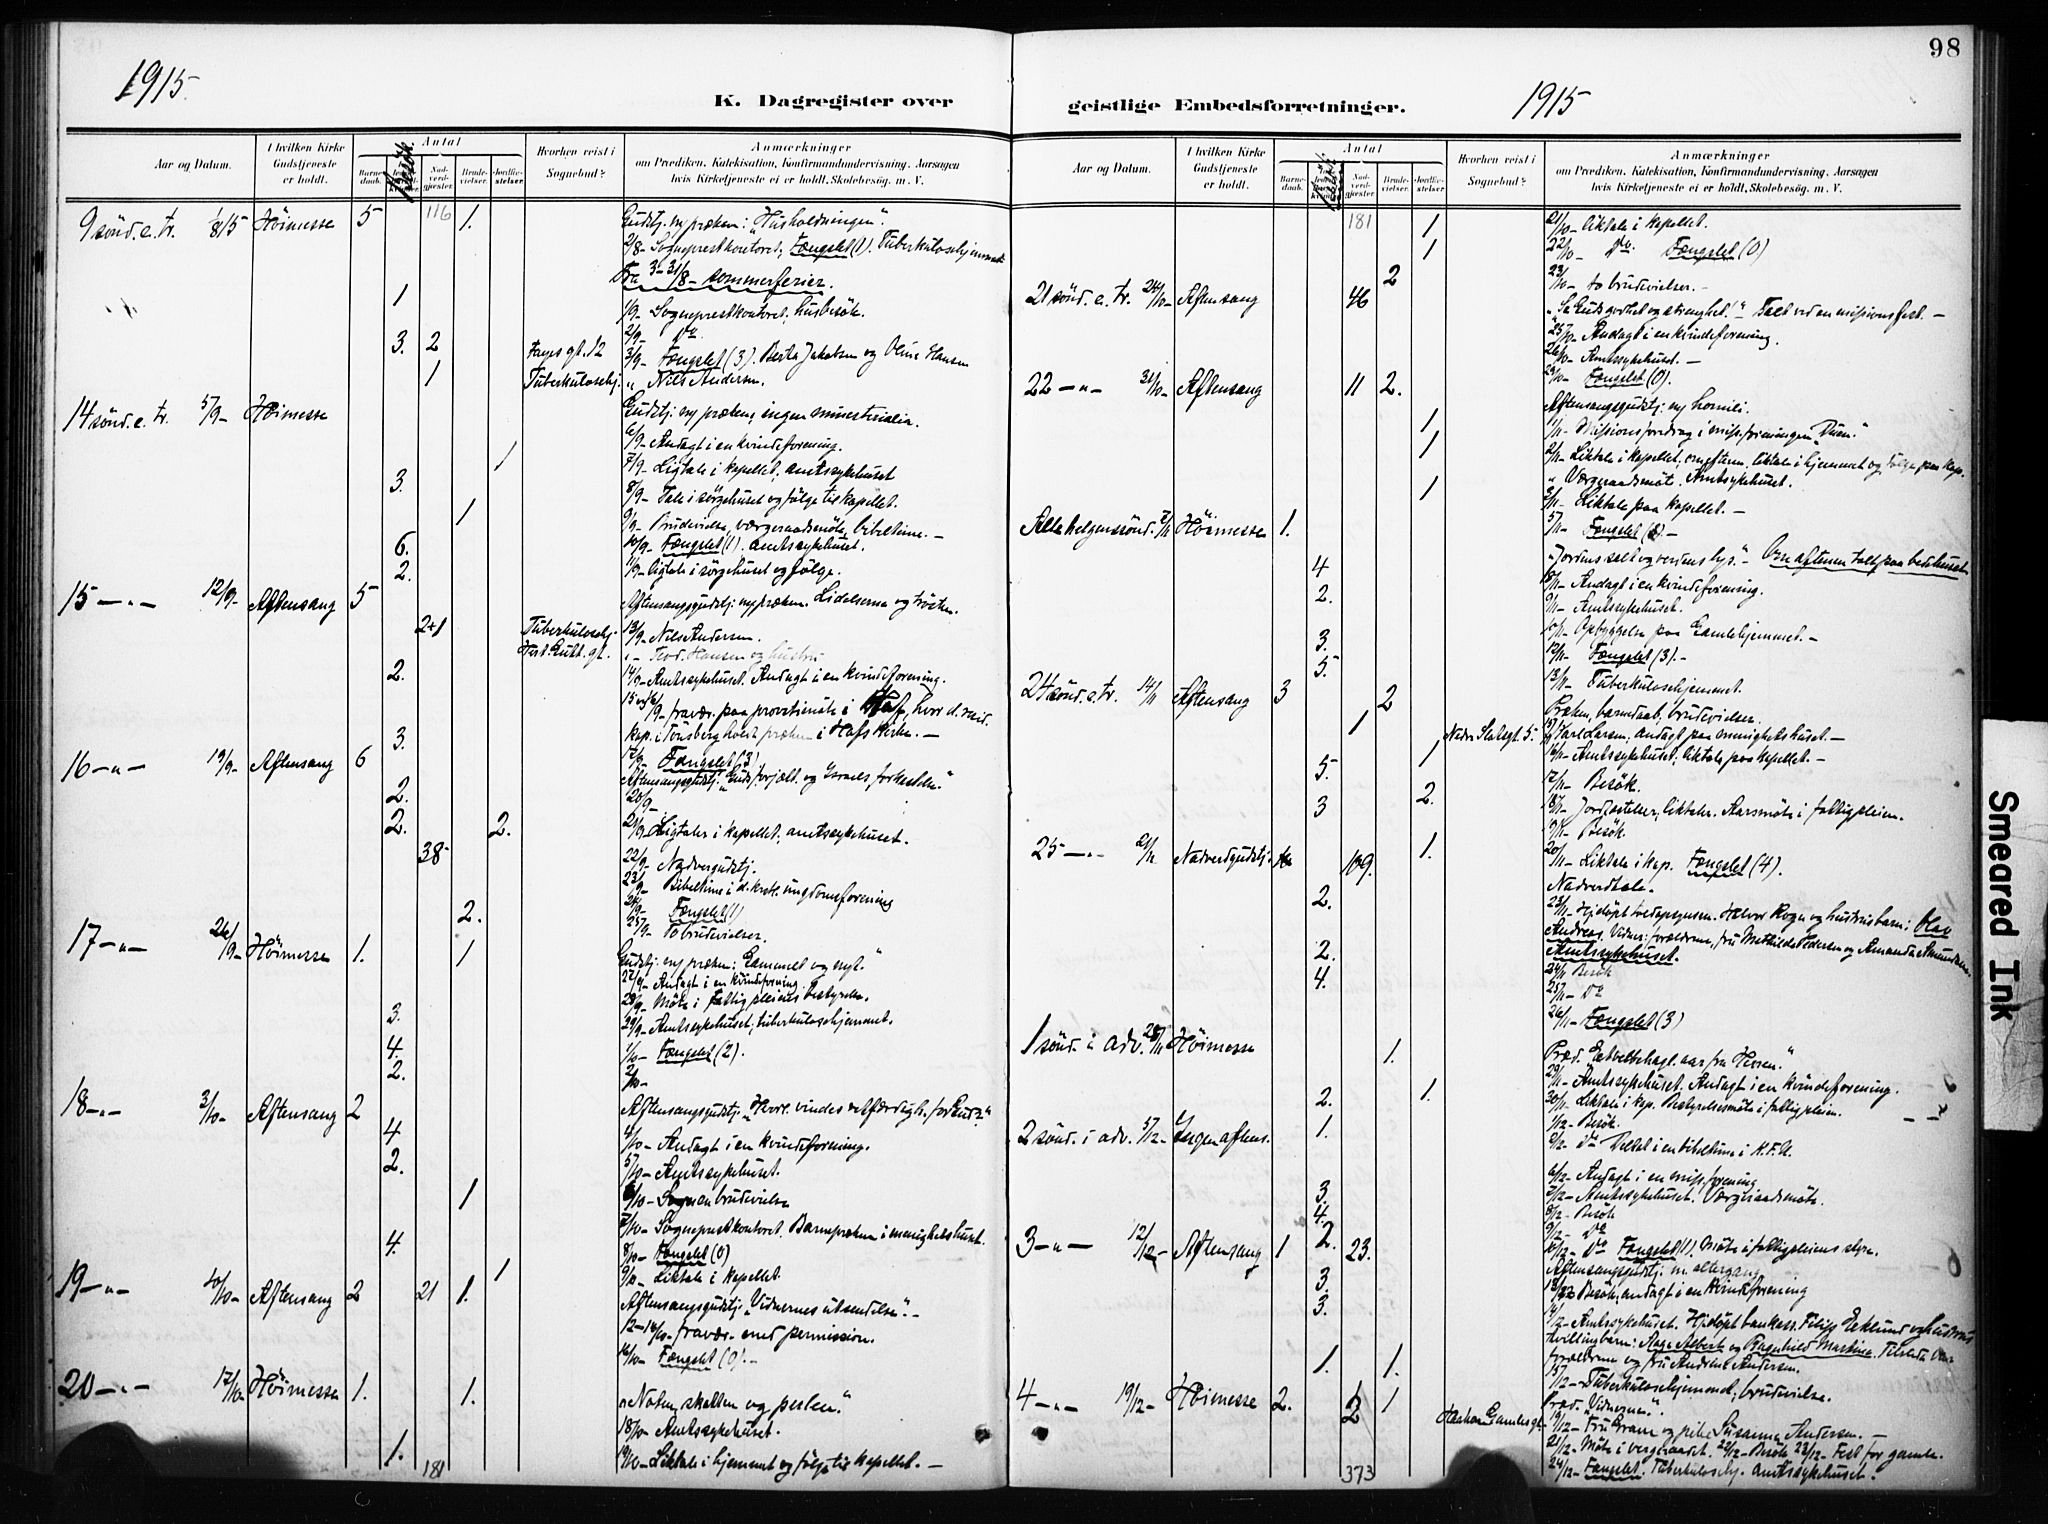 98
1915
1915
K. Dagregister over
geistlige Embedsforretninger.
Aar og Datum.
I hvilken Kirke Gudstjeneste er holdt.
Antal
Barnedaab.
Nadverdgjester.
Brudevielser.
Jordfæstelser.
Hvorhen reist i Sognebud?
Anmærkninger
om Prædiken, Katekisation, Konfirmandundervisning, Aarsagen
hvis Kirketjeneste ei er holdt, Skolebesøg. m. V.
Aar og Datum.
I hvilken Kirke Gudstjeneste er holdt.
Antal
Barnedaab.
Nadverdgjester.
Brudevielser.
Jordfæstelser.
Hvorhen reist i Sognebud?
Anmærkninger
om Prædiken, Katekisation, Konfirmandundervisning, Aarsagen
hvis Kirketjeneste ei er holdt, Skolebesøg. m. V.
116
9 sönd. e. tr. 1/8 15 Höimesse 5 1. Gudstj. ny præken: "Husholdningen".
2/8- Sogneprestkontoret; Fængslet (1). Tuberkulosehjemmet
Fra 3-31/8- sommerferier.
1 1/9- Sogneprestkontoret; husbesök.
2/9- do
3. 2 3/9- Fængslet (3). Berta Jakobsen og Oline Hansen
1 Tuberkulosehj. " Nils Andersen.
14 sönd. e. tr. 5/9- Höimesse Gudstj. ny præken; ingen ministerialia.
6/9- Andagt i en kvindeforening.
1 7/9- Ligtale i kapellet, amtssykehuset
3. 8/9- Tale i sörgehuset og fölge til kapellet.
1 9/9- Brudevielse, værgeraadsmöte, bibeltime. -
6. 10/9- Fængslet (1). amtssykehuset.
2. 11/9- Ligtale i sörgehuset og fölge.
15 -"- 12/9- Aftensang 5 Aftensangsgudstj. ny præken. Lidelserne og trösten.
2+1 Tuberkulosehj. 13/9- Nils Andersen.
Hansen og hustru
2. 14/9- Amtssykehuset. Andagt i en kvindeforening.
15 og 16/9- fravær. paa provstimöte i Hof, hvor d. resid.
3. kap. i Tönsberg holdt præken i Hofs kirke. -
17/9- Fængslet (3)
16 -"- 19/9- Aftensang 6 Aftensangsgudstj.
2. 20/9-
2. 2. 21/9- Ligtaler i kapellet; amtssykehuset.
38 22/9- Nadvergudstj.
23/9- Bibeltime i d. kristl. ungdomsforening
24/9- Fængslet (1)
2. 25/9- To brudevielser.
17 -"- 26/9- Höimesse 1. 1 Gudstj. ny præken: "Gammelt og nyt."
27/9- Andagt i en kvindeforening.
28/9- Möte i fattigpleiens bestyrelse.
3. 29/9- Amtssykehuset; tuberkulosehjemmet.
4. 1/10- Fængslet (2).
2. 2/10-
18 -"- 3/10- Aftensang 2 Aftensangsgudstj.
4 4/10- Andagt i en kvindeforening.
2. 5/10- Amtssykehuset.
1 6/10- en brudevielse
7/10- Sogneprestkontoret. Barnepræken i menighetshuset.
4. 8/10- Fængslet (0)
1 9/10- Liktale i kapellet.
19 -"- 10/10- Aftensang 2 21 1. Aftensangsgudstj. "Vidnernes utsendelse". -
12-14/10- fravær. med permission.
16/10- Fængslet (0). -
20 -"- 17/10- Höimesse 1. 1. "Noten, skatten og perlen."
18/10- Amtssykehuset.
1. 19/10- Liktale i hjemmet og fölge til kapellet. -
181
181
1 21/10- Liktale i kapellet.
1 22/10- do Fængslet (0)
2 23/10- to brudevielser. -
21 sönd. e. tr. 24/10- Aftensang 46 "Se Guds godhet og strenghet!" Talt ved en misjonsfest. -
25/10- Andagt i en kvindeforening.
26/10- Amtssykehuset. -
29/10- Fængslet (0).
22 -"- 31/10- Aftensang 11 2. Aftensangsgudstj. ny homili.
1 1/11- Missionsforedrag i miss.foreningen "Duen."
1 2/11- Liktale i kapellet; om efterm. liktale i hjemmet og fölge paa kap.
" Værgeraadsmöt. Amtssykehuset.
1 3/11- Liktale paa kapellet. -
5/11- Fængslet
Allehelgenssönd. 7/11 Höimesse 1. "Jordens salt og verdens lys." - Om aftenen talt paa bedehuset
4 8/11- Andagt i en kvindeforening.
2. 9/11- Amtssykehuset.
10/11- Opbyggelse paa Gamlehjemmet. -
3. 12/11- Fængslet (3). -
5. 13/11- Tuberkulosehjemmet.
24 sönd. e. tr. 14/11 Aftensang 3 2 Præken, barnedaab, brudevielser.
1 Nedre Slotsgt. 5. 15/11 Karl Larsen; andagt paa menighetshuset. -
1 16/11- Amtssykehuset; liktale paa kapellet. -
5. 17/11- Besök.
3 2. 18/11- Jordfæstelser, liktaler. Aarsmöte i fattigpleien.
19/11- Besök
1. 20/11- Liktale i kap. Fængslet (4).
25 -"- 21/11 Nadverdgudstj. 109. Nadverdtale.
2. 23/11- Hjdöpt tredagegammelt Halvor Rogn og hustrus barn: Olav
Andreas. Vidner: forældrene, fru Mathilde Pedersen og Amanda Amundsen
2. Amtssykehuset.
4. 24/11 Besök
25/11- do
26/11- Fængslet (3)
1 sönd. i adv. 28/11 Höimesse 1. Præd. "Et velbehagl. aar fra Herren."
29/11- Amtssykehuset. Andagt i en kvindeforening.
2. 1. 30/11- Liktale i kap. Bestyrelsesmöte i fattigpleien.
1. 1/12- Besök.
2 sönd. i adv. 5/12- Ingen aftens. 2/12- do Deltat i en bibeltime i K.F.U.
6/12- Andagt i en miss.forening
3. 7/12- Amtssykehuset. Værgeraadsmöte.
4. 8/12- Besök
9/12- do
2. 10/12- do Fængslet (1). Möte i fattigpleiens styre.
3 -"- 12/12- Aftensang 1 23. Aftensangsgudstj. m. altergang
3. 13/12 Besök; andagt i en kvindeforening
3. 14/12- Amtssykehuset. Hjdöpt bankass. Filip Eklund og hustrus
tvillingbarn: Aage Albert og Ragnhild Martine. Tilstede var
forældrene og fru Andrine Andersen.
1. 1. 15/12- Tuberkulosehjemmet; brudevielse.
4 -"- 19/12- Höimesse 2. 1 2 1 Præd. "Vidnerne".
Haakon Gamlesgt. 19/12- Fru Gram og pike Susanna Andersen. -
21/12- Möte i vergeraadet. 22/12- Besök 23/12- Fest for gamle.
24/12- Fængslet. Tuberkulosehj. Amtssykehuset. -
373
Smeared Ink